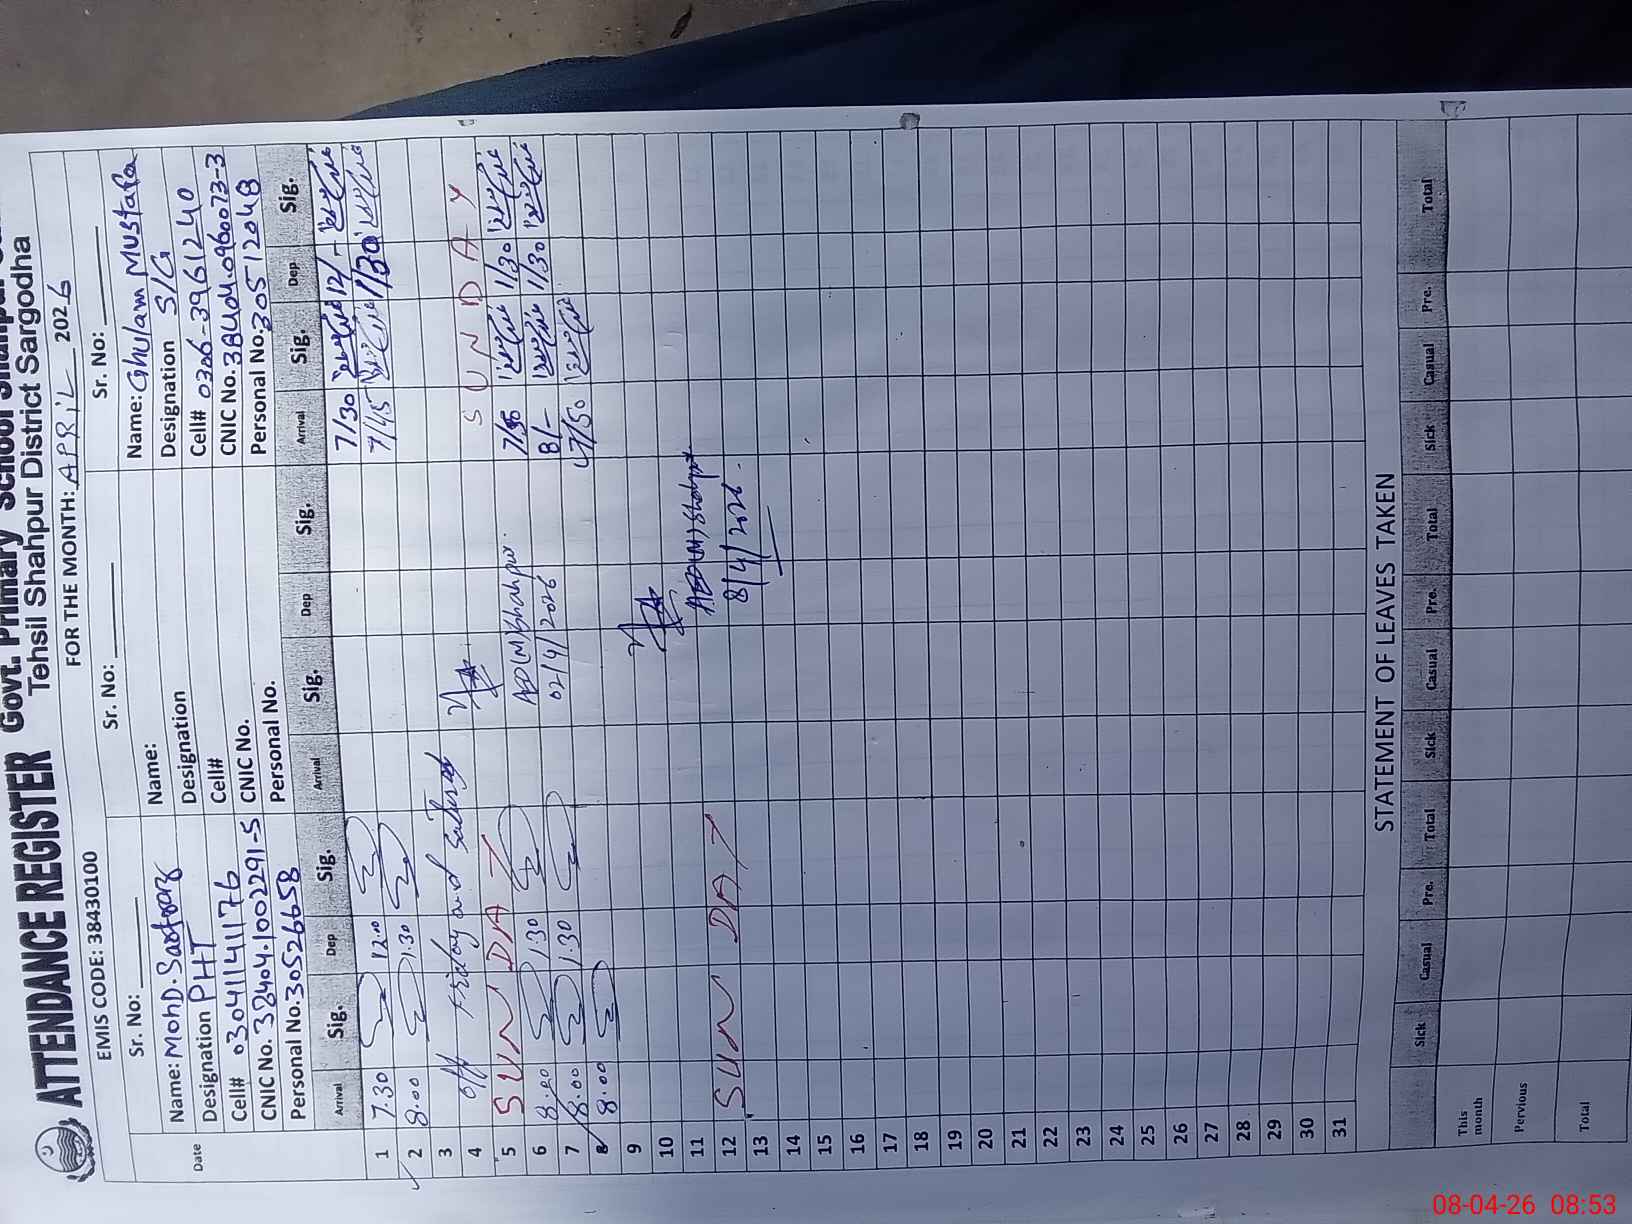 ATTENDANCE REGISTER Govt. Primary School
Tehsil Shahpur District Sargodha
EMIS CODE: 38430100 FOR THE MONTH: APRIL 2026
Sr. No: Sr. No: Sr. No:
Name: MohD. Name: Name: Ghulam Mustafa
Designation PHT Designation Designation S/G
Cell# 03041141176 Cell# Cell# 0306-3961240
CNIC No. 38404.1002291-5 CNIC No. CNIC No. 38404.0960073-3
Personal No. 30526658 Personal No. Personal No. 30512048
Date Arrival Sig. Dep Sig. Arrival Sig. Dep Sig. Arrival Sig. Dep Sig.
1 7.30 12.00 7/30 12/-
2 8.00 1.30 7/45 1/30
3
off Friday and Saturday
4 S U N D A Y
5 SUNDAY 1/30
ADO(M) Shahpur.
6 8.00 1.30 8/- 1/30
02/4/2026
7 8.00 1.30 7/50
8 8.00
9
10
11
Shahpur
12 SUNDAY
8/4/2026.
13
14
15
16
17
18
19
20
21
22
23
24
25
26
27
28
29
30
31
STATEMENT OF LEAVES TAKEN
Sick Casual Pre. Total Sick Casual Pre. Total Sick Casual Pre. Total
This month
Pervious
Total
08-04-26 08:53